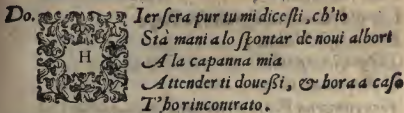 Do. H Ier ſera pur tu mi diceſti, ch'io
Stà mani a lo ſpontar de noui albori
A la capanna mia
Attenderti doueßi, & hora a caſo
T'ho rincontrato.